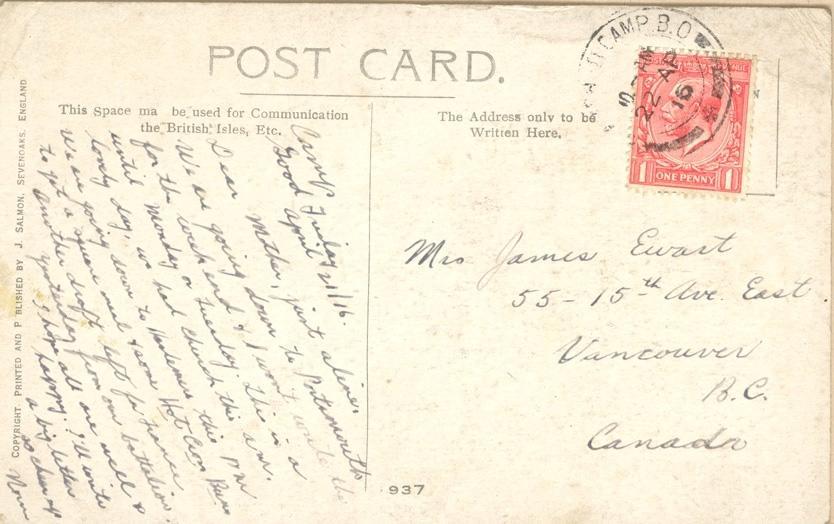 POST CARD.
This Space ma be used for Communication
the British Isles, Etc.
The Address only to be
Written Here.
COPYRIGHT. PRINTED AND P BLISHED BY J. SALMON, SEVENOAKS, ENGLAND
CAMP B.O
22 AP
16
ONE PENNY
1 1
Camp Friday
Good April 21/16.
Dear Mother, just a line,
We are going down to Portsmouth
for the week end & I won't write the
Monday or Tuesday. This is a
until we had church this a.m.
lovely day,
We are going down to this p.m.
to get a square meal & some Hot Cross Buns
Another draft left for France
yesterday from our battalion.
I hope all are well &
happy. I'll write
a big letter
so cheer up
Norm
Mrs James Ewart
55-15th Ave. East.
Vancouver
B.C.
Canada
937